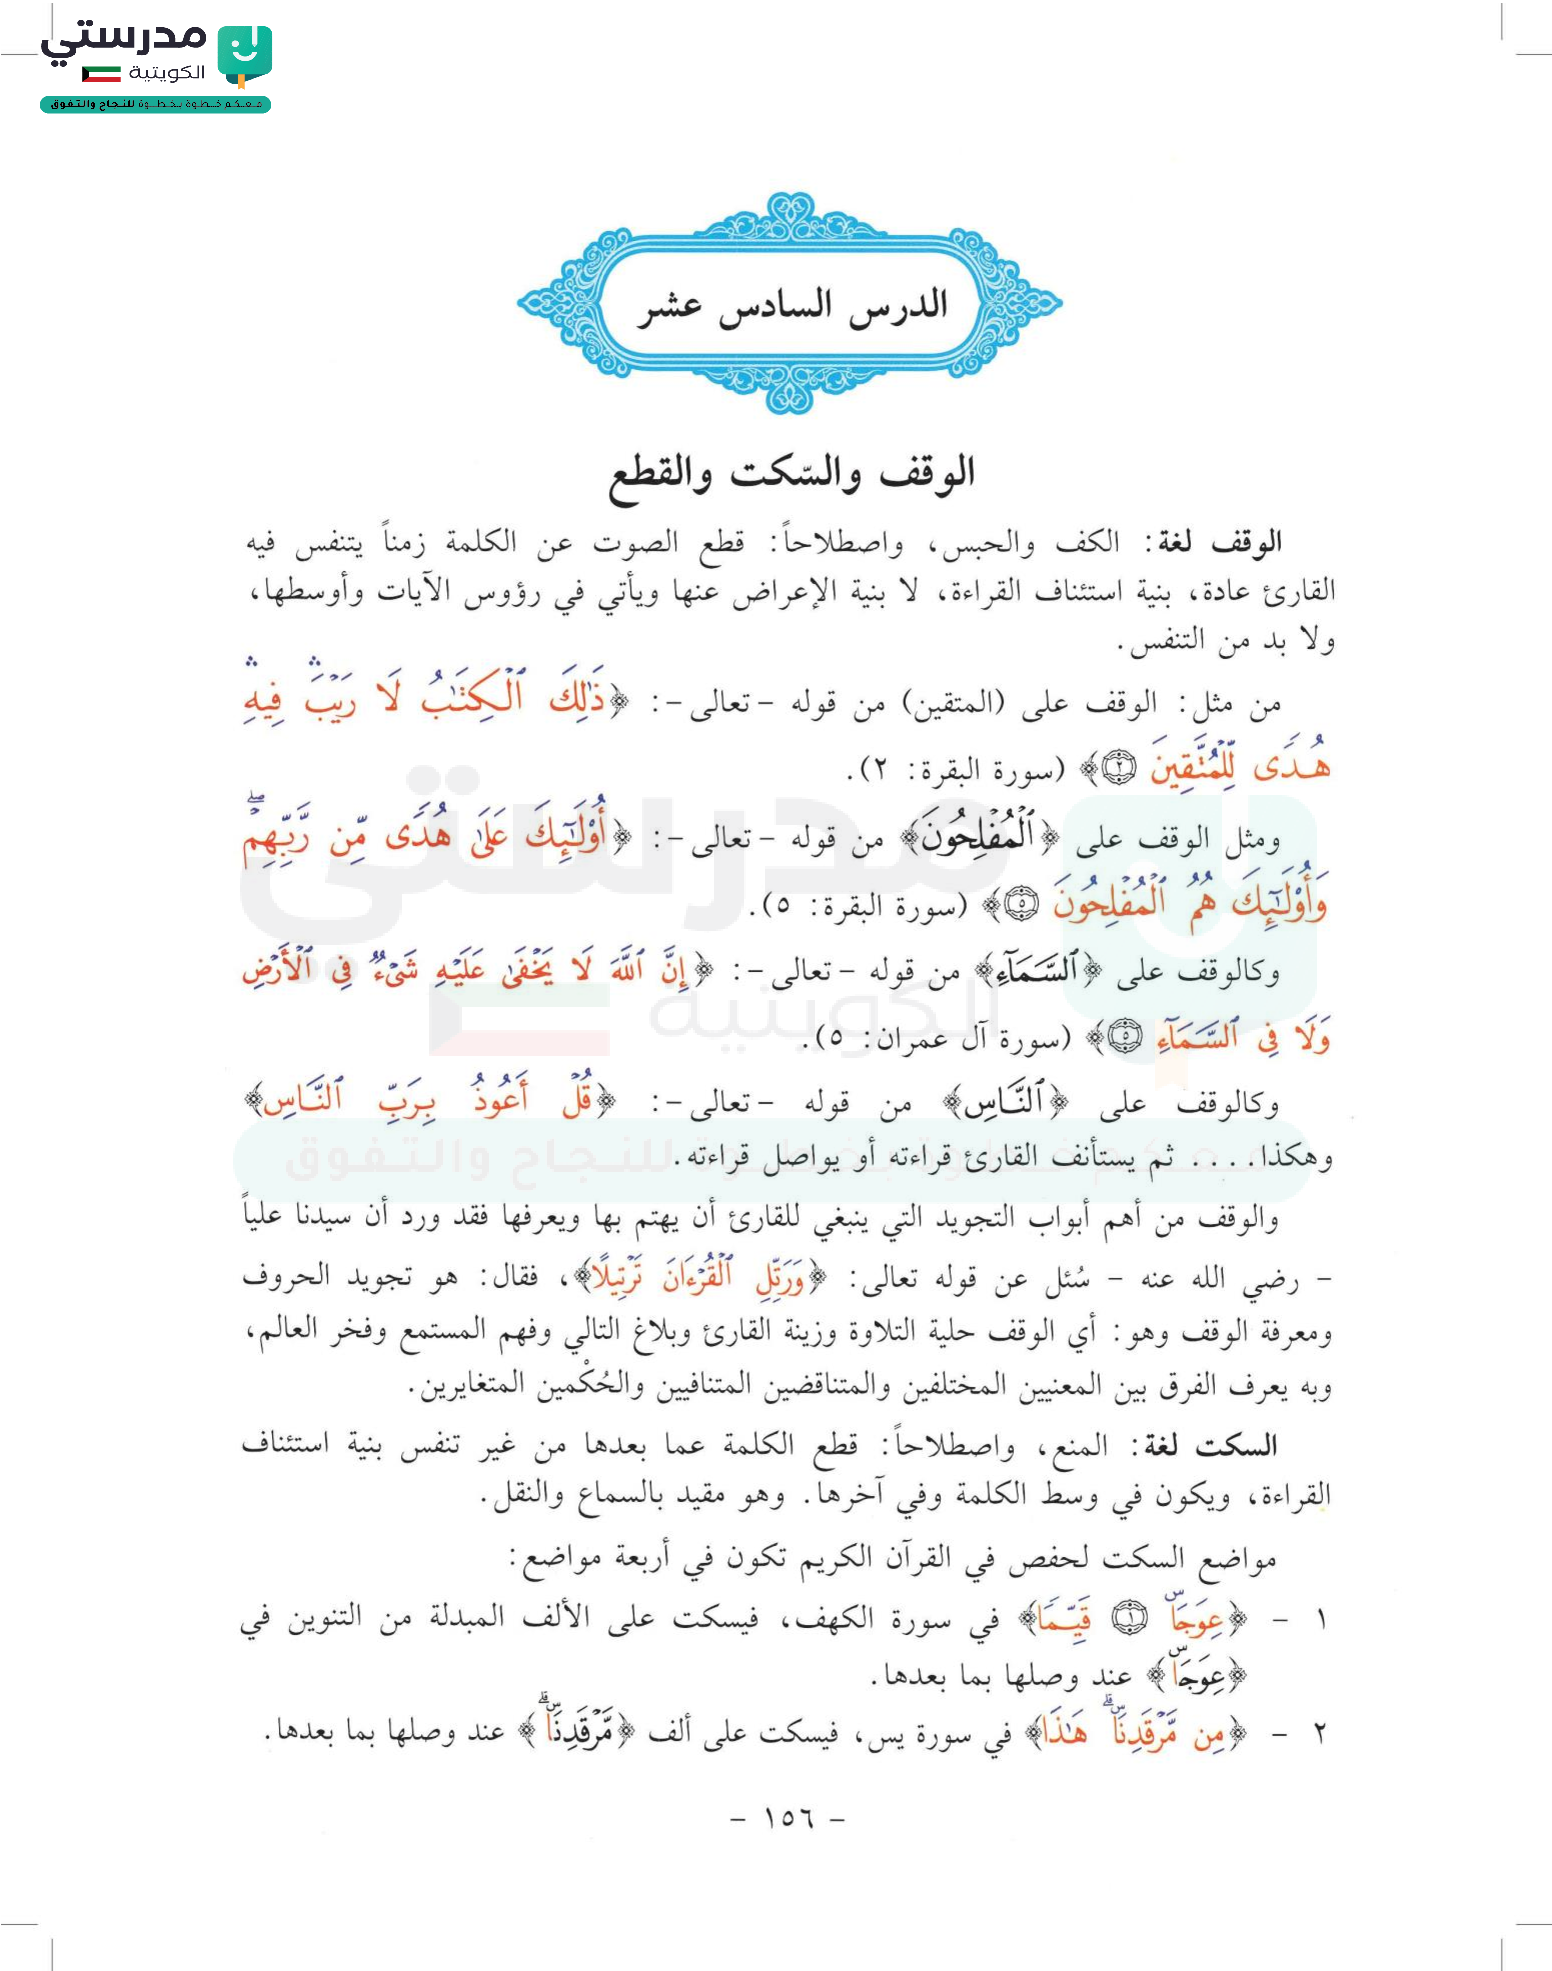 مدرستي
الكويتية
معكم خطوة بخطوة للنجاح والتفوق
الدرس السادس عشر
الوقف والسّكت والقطع
الوقف لغة: الكف والحبس، واصطلاحاً: قطع الصوت عن الكلمة زمناً يتنفس فيه
القارئ عادة، بنية استئناف القراءة، لا بنية الإعراض عنها ويأتي في رؤوس الآيات وأوسطها،
ولا بد من التنفس.
من مثل: الوقف على (المتقين) من قوله -تعالى-: ﴿ذَٰلِكَ ٱلْكِتَٰبُ لَا رَيْبَ ۛ فِيهِ ۛ
هُدًى لِّلْمُتَّقِينَ ٢﴾ (سورة البقرة: ٢).
ومثل الوقف على ﴿ٱلْمُفْلِحُونَ﴾ من قوله -تعالى-: ﴿أُوْلَٰٓئِكَ عَلَىٰ هُدًى مِّن رَّبِّهِمْ ۖ
وَأُوْلَٰٓئِكَ هُمُ ٱلْمُفْلِحُونَ ٥﴾ (سورة البقرة: ٥).
وكالوقف على ﴿ٱلسَّمَآءِ﴾ من قوله -تعالى-: ﴿إِنَّ ٱللَّهَ لَا يَخْفَىٰ عَلَيْهِ شَىْءٌ فِى ٱلْأَرْضِ
وَلَا فِى ٱلسَّمَآءِ ٥﴾ (سورة آل عمران: ٥).
وكالوقف على ﴿ٱلنَّاسِ﴾ من قوله -تعالى-: ﴿قُلْ أَعُوذُ بِرَبِّ ٱلنَّاسِ﴾
وهكذا.... ثم يستأنف القارئ قراءته أو يواصل قراءته.
والوقف من أهم أبواب التجويد التي ينبغي للقارئ أن يهتم بها ويعرفها فقد ورد أن سيدنا علياً
- رضي الله عنه - سُئل عن قوله تعالى: ﴿وَرَتِّلِ ٱلْقُرْءَانَ تَرْتِيلًا﴾، فقال: هو تجويد الحروف
ومعرفة الوقف وهو: أي الوقف حلية التلاوة وزينة القارئ وبلاغ التالي وفهم المستمع وفخر العالم،
وبه يعرف الفرق بين المعنيين المختلفين والمتناقضين المتنافيين والحُكْمين المتغايرين.
السكت لغة: المنع، واصطلاحاً: قطع الكلمة عما بعدها من غير تنفس بنية استئناف
القراءة، ويكون في وسط الكلمة وفي آخرها. وهو مقيد بالسماع والنقل.
مواضع السكت لحفص في القرآن الكريم تكون في أربعة مواضع:
١ - ﴿عِوَجَاۜ ١ قَيِّمًا﴾ في سورة الكهف، فيسكت على الألف المبدلة من التنوين في
﴿عِوَجَاۜ﴾ عند وصلها بما بعدها.
٢ - ﴿مِن مَّرْقَدِنَاۜ ۗ هَٰذَا﴾ في سورة يس، فيسكت على ألف ﴿مَّرْقَدِنَاۜ ۗ﴾ عند وصلها بما بعدها.
- ١٥٦ -